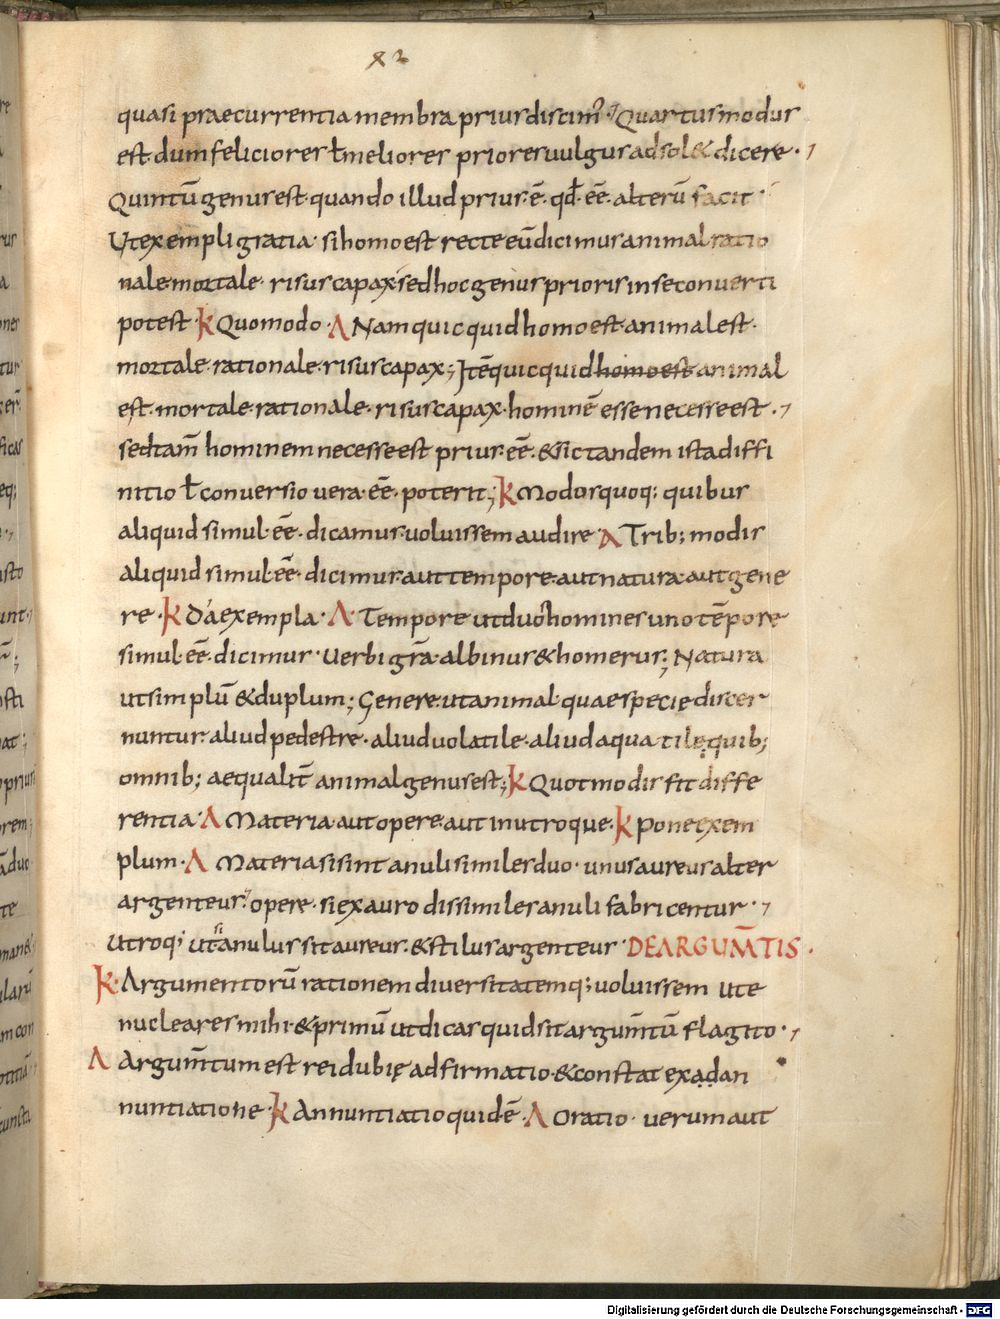 x2
quasi praecurrentia membra prius discim᷒; Quartus modus
est· dum feliciores ł meliores priores vulgus ad sol& dicere·,
Quintū genus est· quando illud prius· ē· qđ· eē· alterū facit·
Ut exempli gratia· si homo est recte eū dicimus animal ratio
nale mortale· risus capax· sed hoc genus prioris in se converti
potest· K Quomodo· Λ Nam quicquid homo est animal est·
mortale· rationale· risus capax; Itē quicquid homo est animal
est· mortale· rationale· risus capax· hominē esse necesse est·,
sed tam̄ hominem necesse est prius· eē· & sic tandem ista diffi
nitio ł conversio vera· eē· poterit; K Modos quoq; quibus
aliquid simul· eē· dicamus· voluissem audire Λ Trib; modis
aliquid simul· eē· dicimus· aut tempore· aut natura· aut gene
re· K Da exempla· Λ· Tempore ut duo homines uno tēpore
simul· eē· dicimus· Verbi gr̄a· albinus & homerus; Natura
ut simplū & duplum; Genere· ut animal· quae specie discer
nuntur· aliud pedestre· aliud volatile· aliud aquatilę quib;
omnib; aequalit̄ animal genus est; K Quot modis fit diffe
rentia· Λ Materia· aut opere· aut in utroque· K Pone exem
plum· Λ Materia si sint anuli similes duo· unus aureus alter
argenteus; opere· si ex auro dissimiles anuli fabricentur·,
Utroq; ut si anulus sit aureus· & stilus argenteur· DE ARGUM̄TIS·
K· Argumentorū rationem diversitatemq; voluissem ut e
nucleares mihi· & primū ut dicas quid sit argum̄tū flagito·,
Λ Argum̄tum est rei dubię adfirmatio· & constat ex adan
nuntiatione· K Annuntiatio quid· ē· Λ Oratio· verum aut
Digitalisierung gefördert durch die Deutsche Forschungsgemeinschaft - DFG